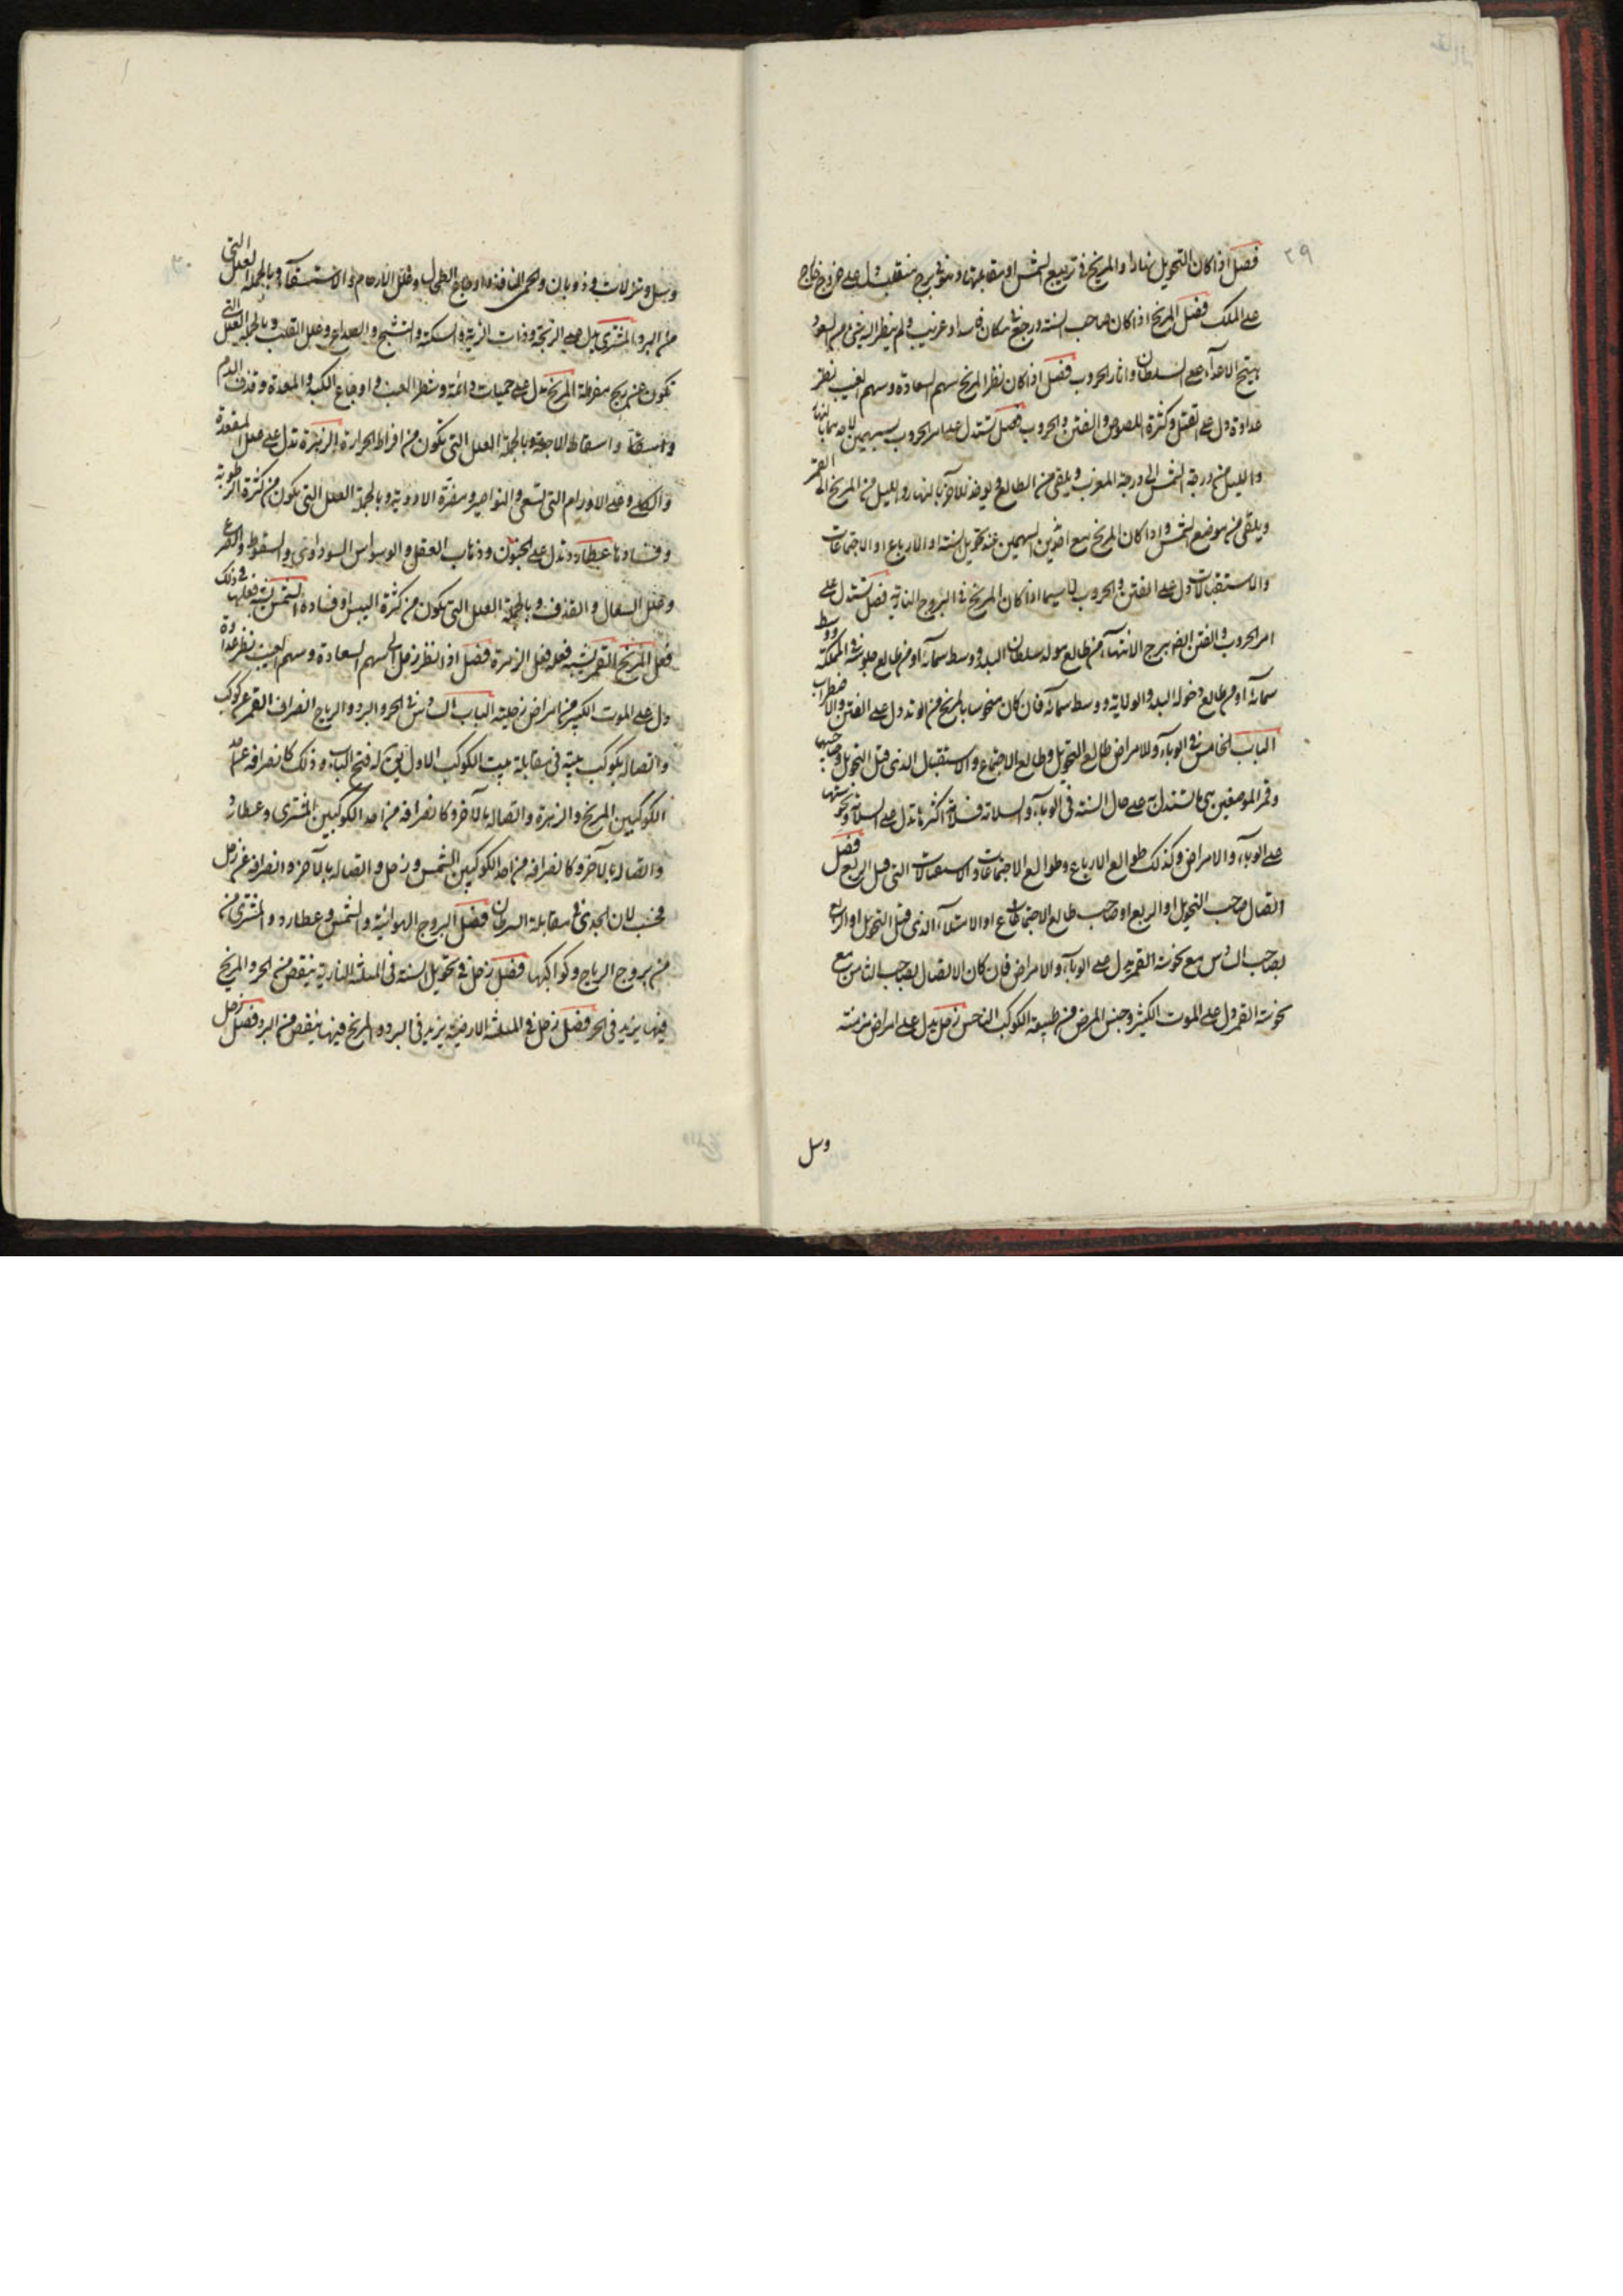 ٢٩
فصل اذا كان التحويل نهارا والمريخ في تربيع الشمس او مقابلتها وهو في برج منقلب دل على خروج خارج
على الملك فصل المريخ اذا كان صاحب السنة ورجع في مكان او غريب ولم ينظر اليه شيء من السعود
يهيج الاعداء على السلطان واثار الحروب فصل اذا كان نظر المريخ سهم السعادة وسهم الغيب نظر
عداوة دل على القتل وكثرة اللصوص والفتن والحروب فصل تستدل على امر الحروب بسهمين لاحدهما بالنهار
والليل من درجة الشمس الى درجة المغرب ويلقى من الطالع ويوخذ للآخر بالنهار والليل من المريخ الى القمر
ويلقى من موضع الشمس واذا كان المريخ مع احد السهمين عند تحويل السنة او الارباع او الاجتماعات
والاستقبالات دل على الفتن والحروب لا سيما اذا كان المريخ في البروج النارية فصل تستدل على
امر الحروب والفتن ببرج الانتهاء من طالع مولد سلطان البلد ووسط سمائه او من طالع جلوسه في المملكة ووسط
سمائه او من طالع دخوله البلد والولاية ووسط سمائه فان كان منحوسا بالمريخ من الوتد دل على الفتن والاضطراب
الباب الخامس في الوباء وللامراض طالع التحويل وطالع الاجتماع والاستقبال الذي قبل التحويل وصاحبيهما
وقمر الموضعين هي ما تستدل به على حال السنة في الوباء والسلامة اكثرها تدل على السلامة ونحوستها
على الوباء والامراض وكذلك طوالع الارباع وطوالع الاجتماعات والاستقبالات التي قبل الربع فصل
اتصال صاحب التحويل او الربع او صاحب طالع الاجتماع او الامتلاء الذي قبل التحويل او الربع
بصاحب السادس مع نحوسة القمر يدل على الوباء والامراض فان كان الاتصال بصاحب الثامن مع
نحوسة القمر دل على الموت الكثير وجنس المرض من طبيعة الكوكب الناحس زحل يدل على امراض مزمنة
وسل
وسل ونزلات وذوبان والحمى النافذة واوجاع الطحال وعلل الارحام والاستسقاء وبالجملة العلل التي
من البرد المشتري يدل على الذبحة وذات الرية والسكتة والتشنج والصداع وعلل القلب وبالجملة العلل التي
تكون عن ريح مفرطة المريخ يدل على حميات دائمة وشطر الغب واوجاع الكبد والمعدة وقذف الدم
واسقاط الاجنة وبالجملة العلل التي تكون من افراط الحرارة الزهرة تدل على علل المقعدة
والكلى وعلى الاورام التي تسعى والنواصير ومضرة الادوية وبالجملة العلل التي يكون من كثرة الرطوبة
وفسادها عطارد تدل على الجنون وذهاب العقل والوسواس السوداوي والسقوط والصرع
وعلل السعال والقذف وبالجملة العلل التي تكون من كثرة اليبس او فساده الشمس يشبه فعلها في ذلك
فعل المريخ القمر يشبه فعله فعل الزهرة فصل اذا نظر زحل الى سهم السعادة وسهم الغيب نظر عداوة
دل على الموت الكثير من امراض زحلية الباب السادس في الحر والبرد والرياح انصراف القمر عن كوكب
واتصاله بكوكب بيته في مقابلة بيت الكوكب الاول يق له فتح الباب وذلك كانصرافه عن احد
الكوكبين المريخ والزهرة واتصاله بالآخر وكانصرافه من احد الكوكبين المشتري وعطارد
واتصاله بالآخر وكانصرافه من احد الكوكبين الشمس وزحل واتصاله بالآخر وانصرافه عن زحل
فحسب لان الجدي في مقابلة السرطان فصل البروج الهوائية والشمس وعطارد والمشتري من
من بروج الرياح وكواكبها فصل زحل في تحويل السنة في المثلثة النارية ينقص من الحر والمريخ
فيها يزيد في الحر فصل زحل في المثلثة الارضية يزيد في البرد والمريخ فيها ينقص من البرد فصل زحل